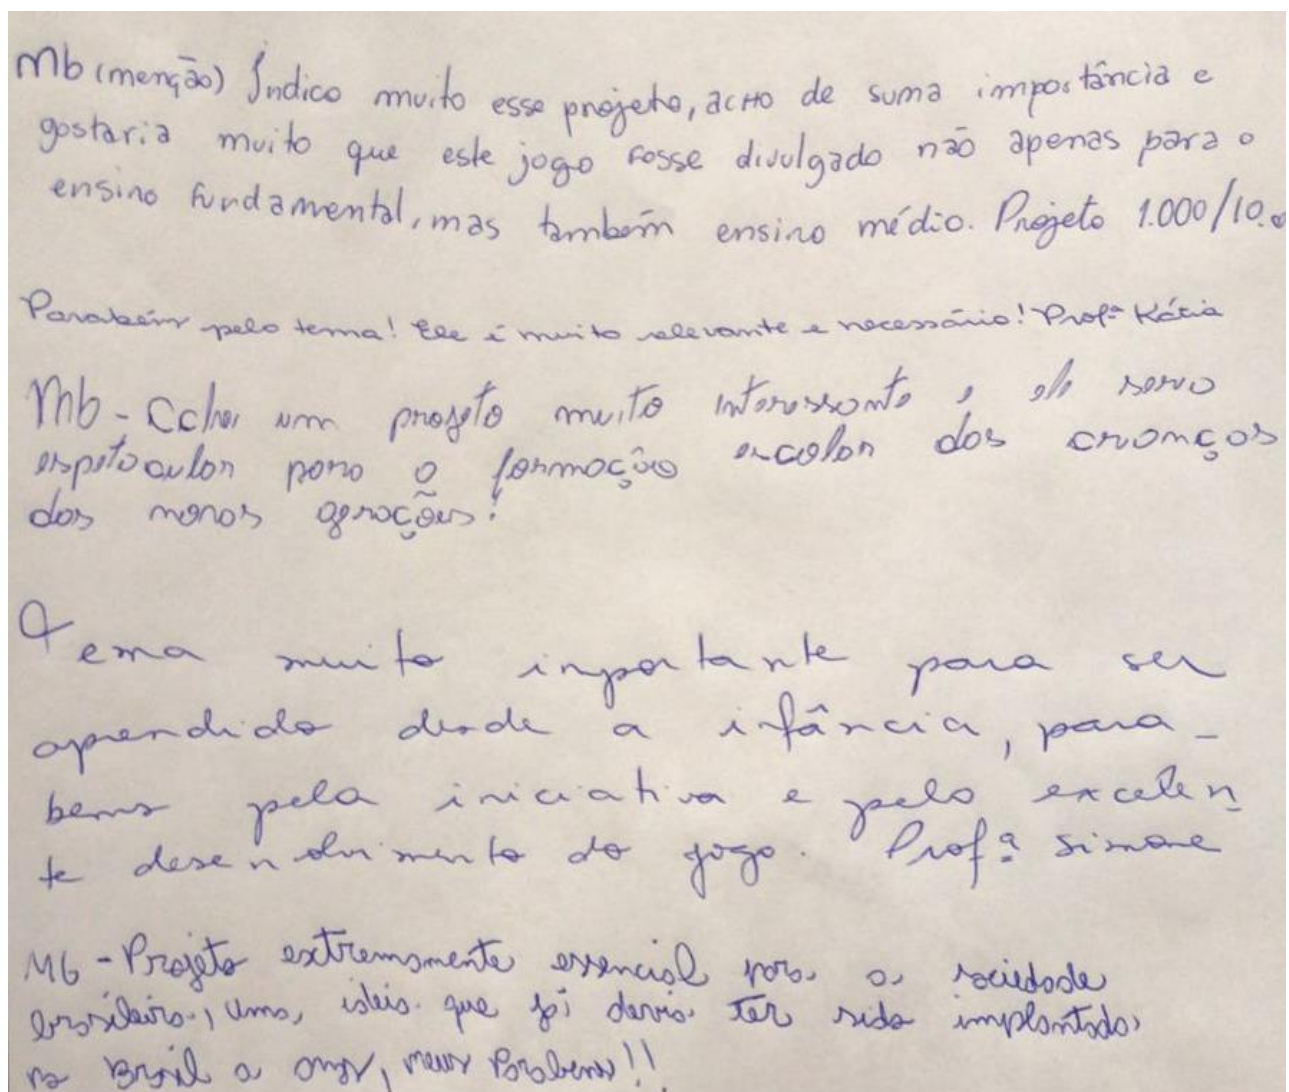 Mb (menção) Índico muito esse projeto, acho de suma importância e
gostaria muito que este jogo fosse divulgado não apenas para o
ensino fundamental, mas também ensino médio. Projeto 1.000/10.
Parabéns pelo tema! Ele é muito relevante e necessário! Profª Kátia
Mb - Achei um projeto muito interessante, ele
espetacular para a formação escolar das crianças
das novas gerações!
Tema muito importante para ser
aprendido desde a infância, para-
bens pela iniciativa e pelo excelen
te desenvolvimento do jogo. Profª Simone
Mb - Projeto extremamente essencial para a sociedade
brasileira, uma ideia que já devia ter sido implantada
no Brasil a anos, meus Parabens!!